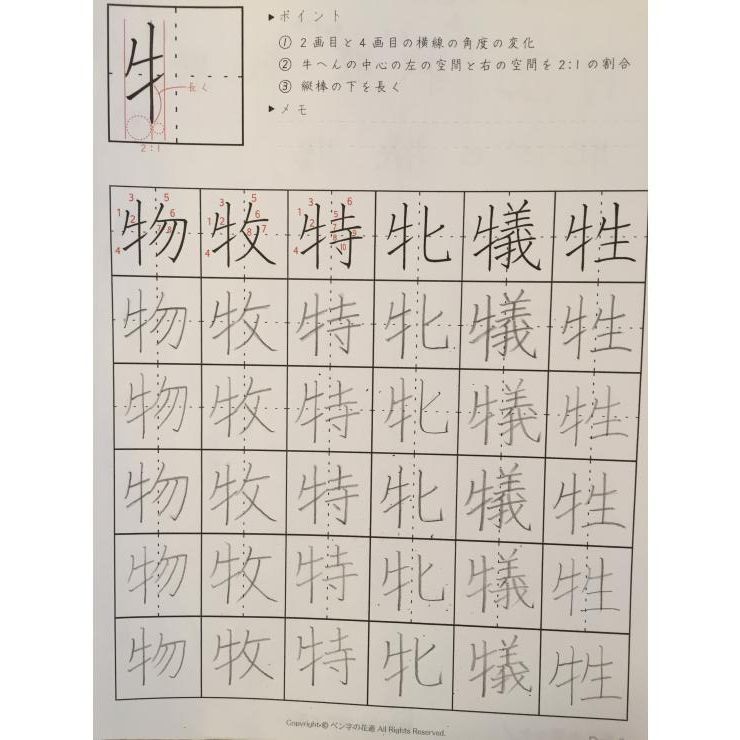 牜
長く
2:1
▶ポイント
① 2画目と4画目の横線の角度の変化
② 牛へんの中心の左の空間と右の空間を2:1の割合
③ 縦棒の下を長く
▶メモ
物 牧 特 牝 犠 牲
物 牧 特 牝 犠 牲
物 牧 特 牝 犠 牲
物 牧 特 牝 犠 牲
物 牧 特 牝 犠 牲
物 牧 特 牝 犠 牲
Copyright© ペン字の花道 All Rights Reserved.